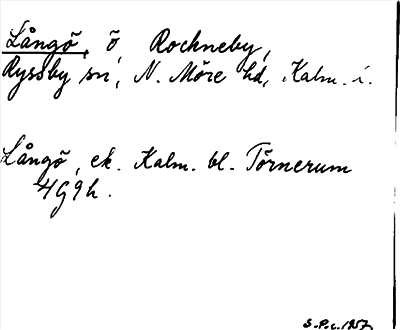 Långö, ö, Rockneby,
Ryssby sn, N. Möre hd, Kalm. l.
Långö, ek. Kalm. bl. Törnerum
4G9h.
S.P.c.1957